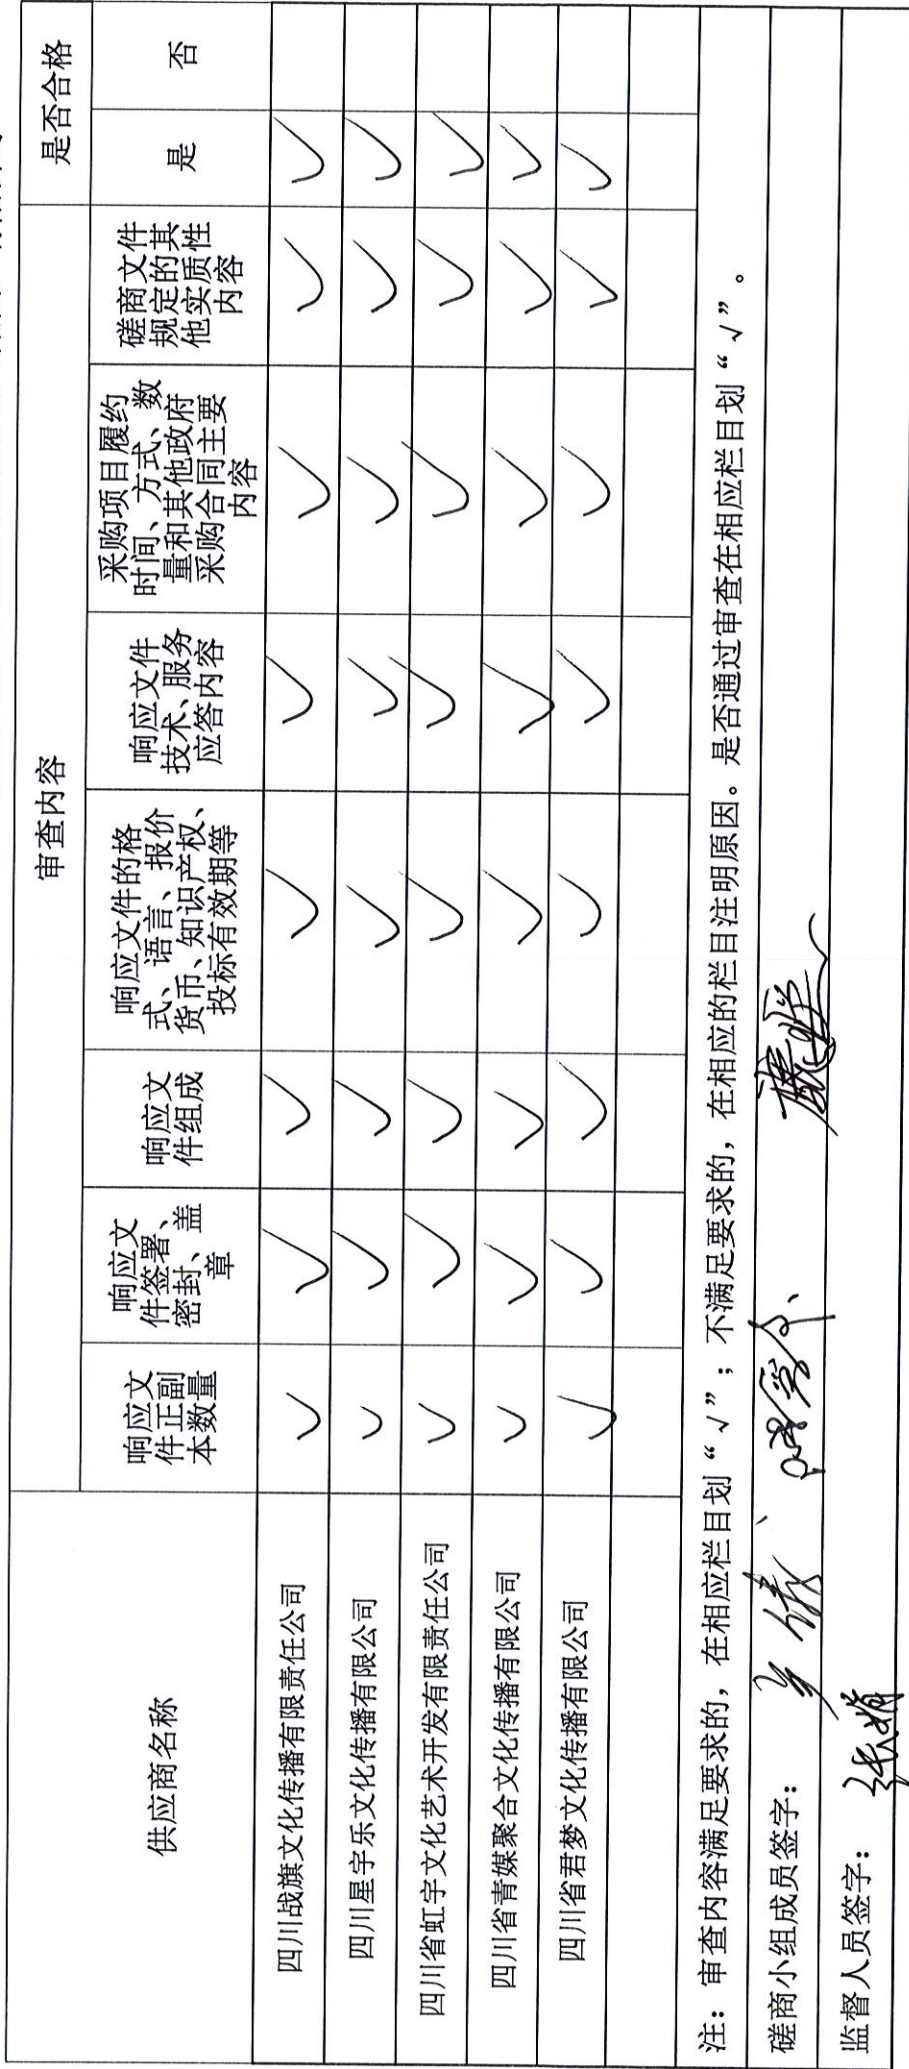 供应商名称
审查内容
是否合格
响应文
件正副
本数量
响应文
件签署、
密封、盖
章
响应文
件组成
响应文件的格
式、语言、报价
货币、知识产权、
投标有效期等
响应文件
技术、服务
应答内容
采购项目履约
时间、方式、数
量和其他政府
采购合同主要
内容
磋商文件
规定的其
他实质性
内容
是
否
四川战旗文化传播有限责任公司 √ √ √ √ √ √ √ √
四川星宇乐文化传播有限公司 √ √ √ √ √ √ √ √
四川省虹宇文化艺术开发有限责任公司 √ √ √ √ √ √ √ √
四川省青媒聚合文化传播有限公司 √ √ √ √ √ √ √ √
四川省君梦文化传播有限公司 √ √ √ √ √ √ √ √
注：审查内容满足要求的，在相应栏目划“√”；不满足要求的，在相应的栏目注明原因。是否通过审查在相应栏目划“√”。
磋商小组成员签字：
监督人员签字：